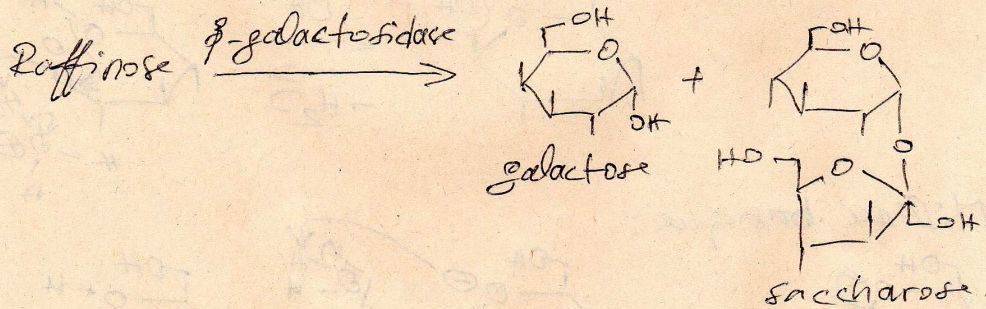 Raffinose β-galactosidase
OH
O
OH
galactose
+
OH
O
O
HO
O
OH
saccharose